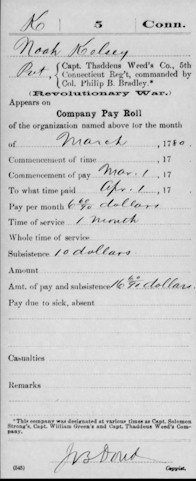 K | 5 | Conn.
Noah Kelsey
Pvt, Capt. Thaddeus Weed's Co., 5th
Connecticut Reg't, commanded by
Col. Philip B. Bradley.*
(Revolutionary War.)
Appears on
Company Pay Roll
of the organization named above for the month
of March, 1780.
Commencement of time, 17
Commencement of pay Mar. 1, 17
To what time paid Apr. 1, 17
Pay per month 6 60/90 dollars
Time of service 1 month
Whole time of service
Subsistence 10 dollars
Amount
Amt. of pay and subsistence 16 60/90 dollars.
Pay due to sick, absent
Casualties
Remarks
*This company was designated at various times as Capt. Solomon
Strong's, Capt. William Green's and Capt. Thaddeus Weed's Com-
pany.
(546) Copyist.